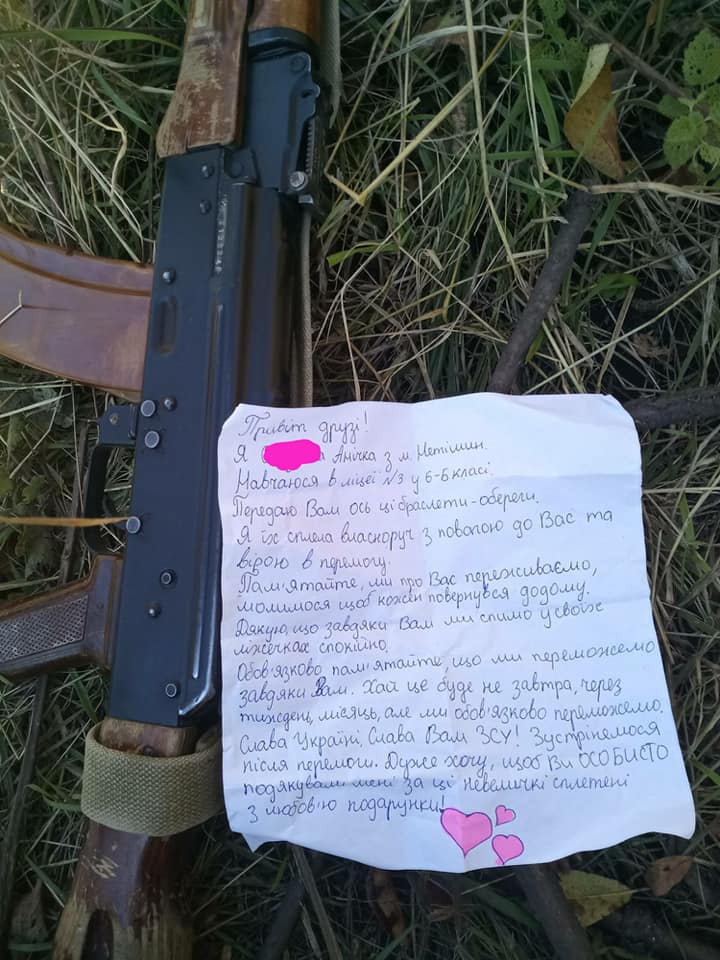 Привіт друзі!
Я Анічка з м. Нетішин.
Навчаюся в ліцеї №3 у 6-Б класі.
Передаю Вам ось ці браслети-обереги.
Я їх сплела власноруч з повагою до Вас та
вірою в перемогу.
Пам'ятайте, ми про Вас переживаємо,
молимося щоб кожен повернувся додому.
Дякую, що завдяки Вам ми спимо у своїх
ліжечках спокійно.
Обов'язково пам'ятайте, що ми переможемо
завдяки Вам. Хай це буде не завтра, через
тиждень, місяць, але ми обов'язково переможемо.
Слава Україні, Слава Вам ЗСУ! Зустрінемося
після перемоги. Дуже хочу, щоб Ви ОСОБИСТО
подякували мені за ці невеличкі сплетені
з любов'ю подарунки!